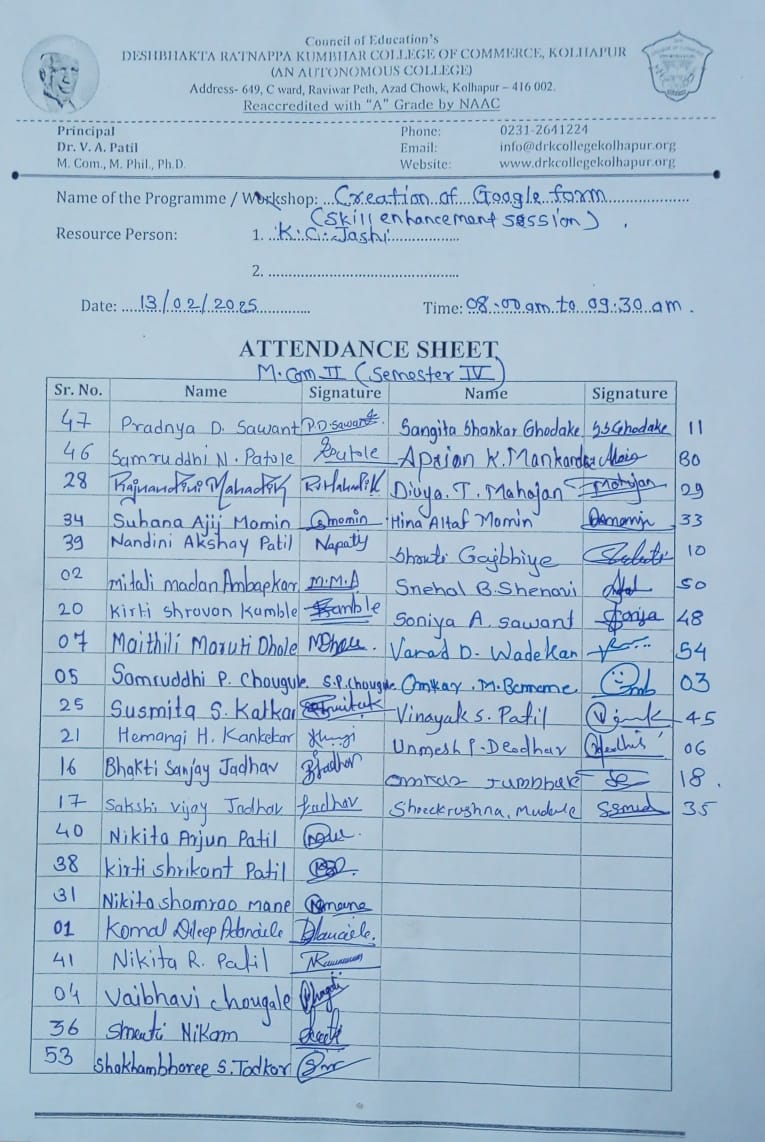 Council of Education's
DESHBHAKTA RATNAPPA KUMBHAR COLLEGE OF COMMERCE, KOLHAPUR
(AN AUTONOMOUS COLLEGE)
Address- 649, C ward, Raviwar Peth, Azad Chowk, Kolhapur – 416 002.
Reaccredited with "A" Grade by NAAC
Principal Phone: 0231-2641224
Dr. V. A. Patil Email: info@drkcollegekolhapur.org
M. Com., M. Phil., Ph.D. Website: www.drkcollegekolhapur.org
Name of the Programme / Workshop: Creation of Google form
(Skill enhancement session)
Resource Person: 1. K. C. Jashi
2.
Date: 13/02/2025 Time: 08:00 am to 09:30 am.
ATTENDANCE SHEET
M.Com II (Semester IV)
Sr. No. Name Signature Name Signature
47 Pradnya D. Sawant P.D.Sawant. Sangita Shankar Ghodake S.S.Ghodake 11
46 Samruddhi N. Patole Aprian K. 30
28 Rajnandini Mahadik R.Mahadik Divya. T. Mahajan Mahajan 29
34 Suhana Ajij Momin Smomin Hina Altaf Momin 33
39 Nandini Akshay Patil Napatil Shruti Gajbhiye 10
02 Mitali Madan Ambapkar M.M.A Snehal B. Shenavi 50
20 Kirti Shravan Kamble Kamble Soniya A. Sawant Soniya 48
07 Maithili Maruti Dhole MDhole. Varad D. Wadekar 54
05 Samruddhi P. Chougule S.P.Chougule Omkar. M. 03
25 Susmita S. Katkar Vinayak S. Patil 45
21 Hemangi H. Kankekar Unmesh P. Deodhar 06
16 Bhakti Sanjay Jadhav BJadhav 18.
17 Sakshi Vijay Jadhav Jadhav Shreekrushna. Mudale 35
40 Nikita Arjun Patil
38 Kirti Shrikant Patil
31 Nikita Shamrao Mane Nmane
01 Komal Dileep
41 Nikita R. Patil
04 Vaibhavi Chougale
36 Smruti Nikam
53 Shakhambharee S. Todkar